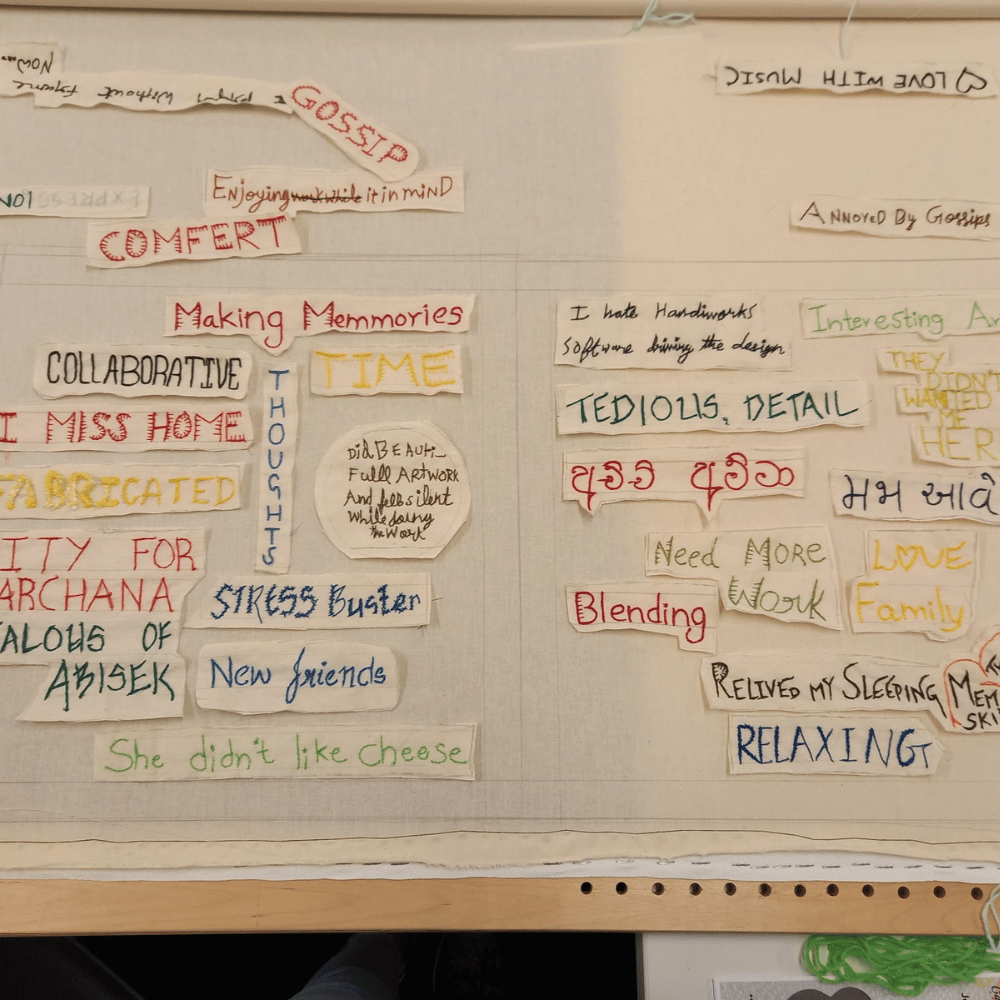 Now...
I Without
GOSSIP
♡ LOVE WITH MUSIC
EXPRESSION
Enjoying work while it in miND
ANNOYED By Gossips
COMFERT
Making Memmories
COLLABORATIVE
TIME
THOUGHTS
I MISS HOME
FABRICATED
Did BEAUTi-
Full ARTWORK
And felt silent
While doing
the Work
ITY FOR
ARCHANA
ALOUS OF
ABISEK
STRESS Buster
New friends
She didn't like cheese
I hate Handiworks
Software driving the design
Interesting
THEY
DIDN'T
WANTED
ME
HER
TEDIOUS, DETAIL
મમ આવે
Need MORE
Work
LOVE
Family
Blending
RELIVED MY SLEEPING
RELAXING